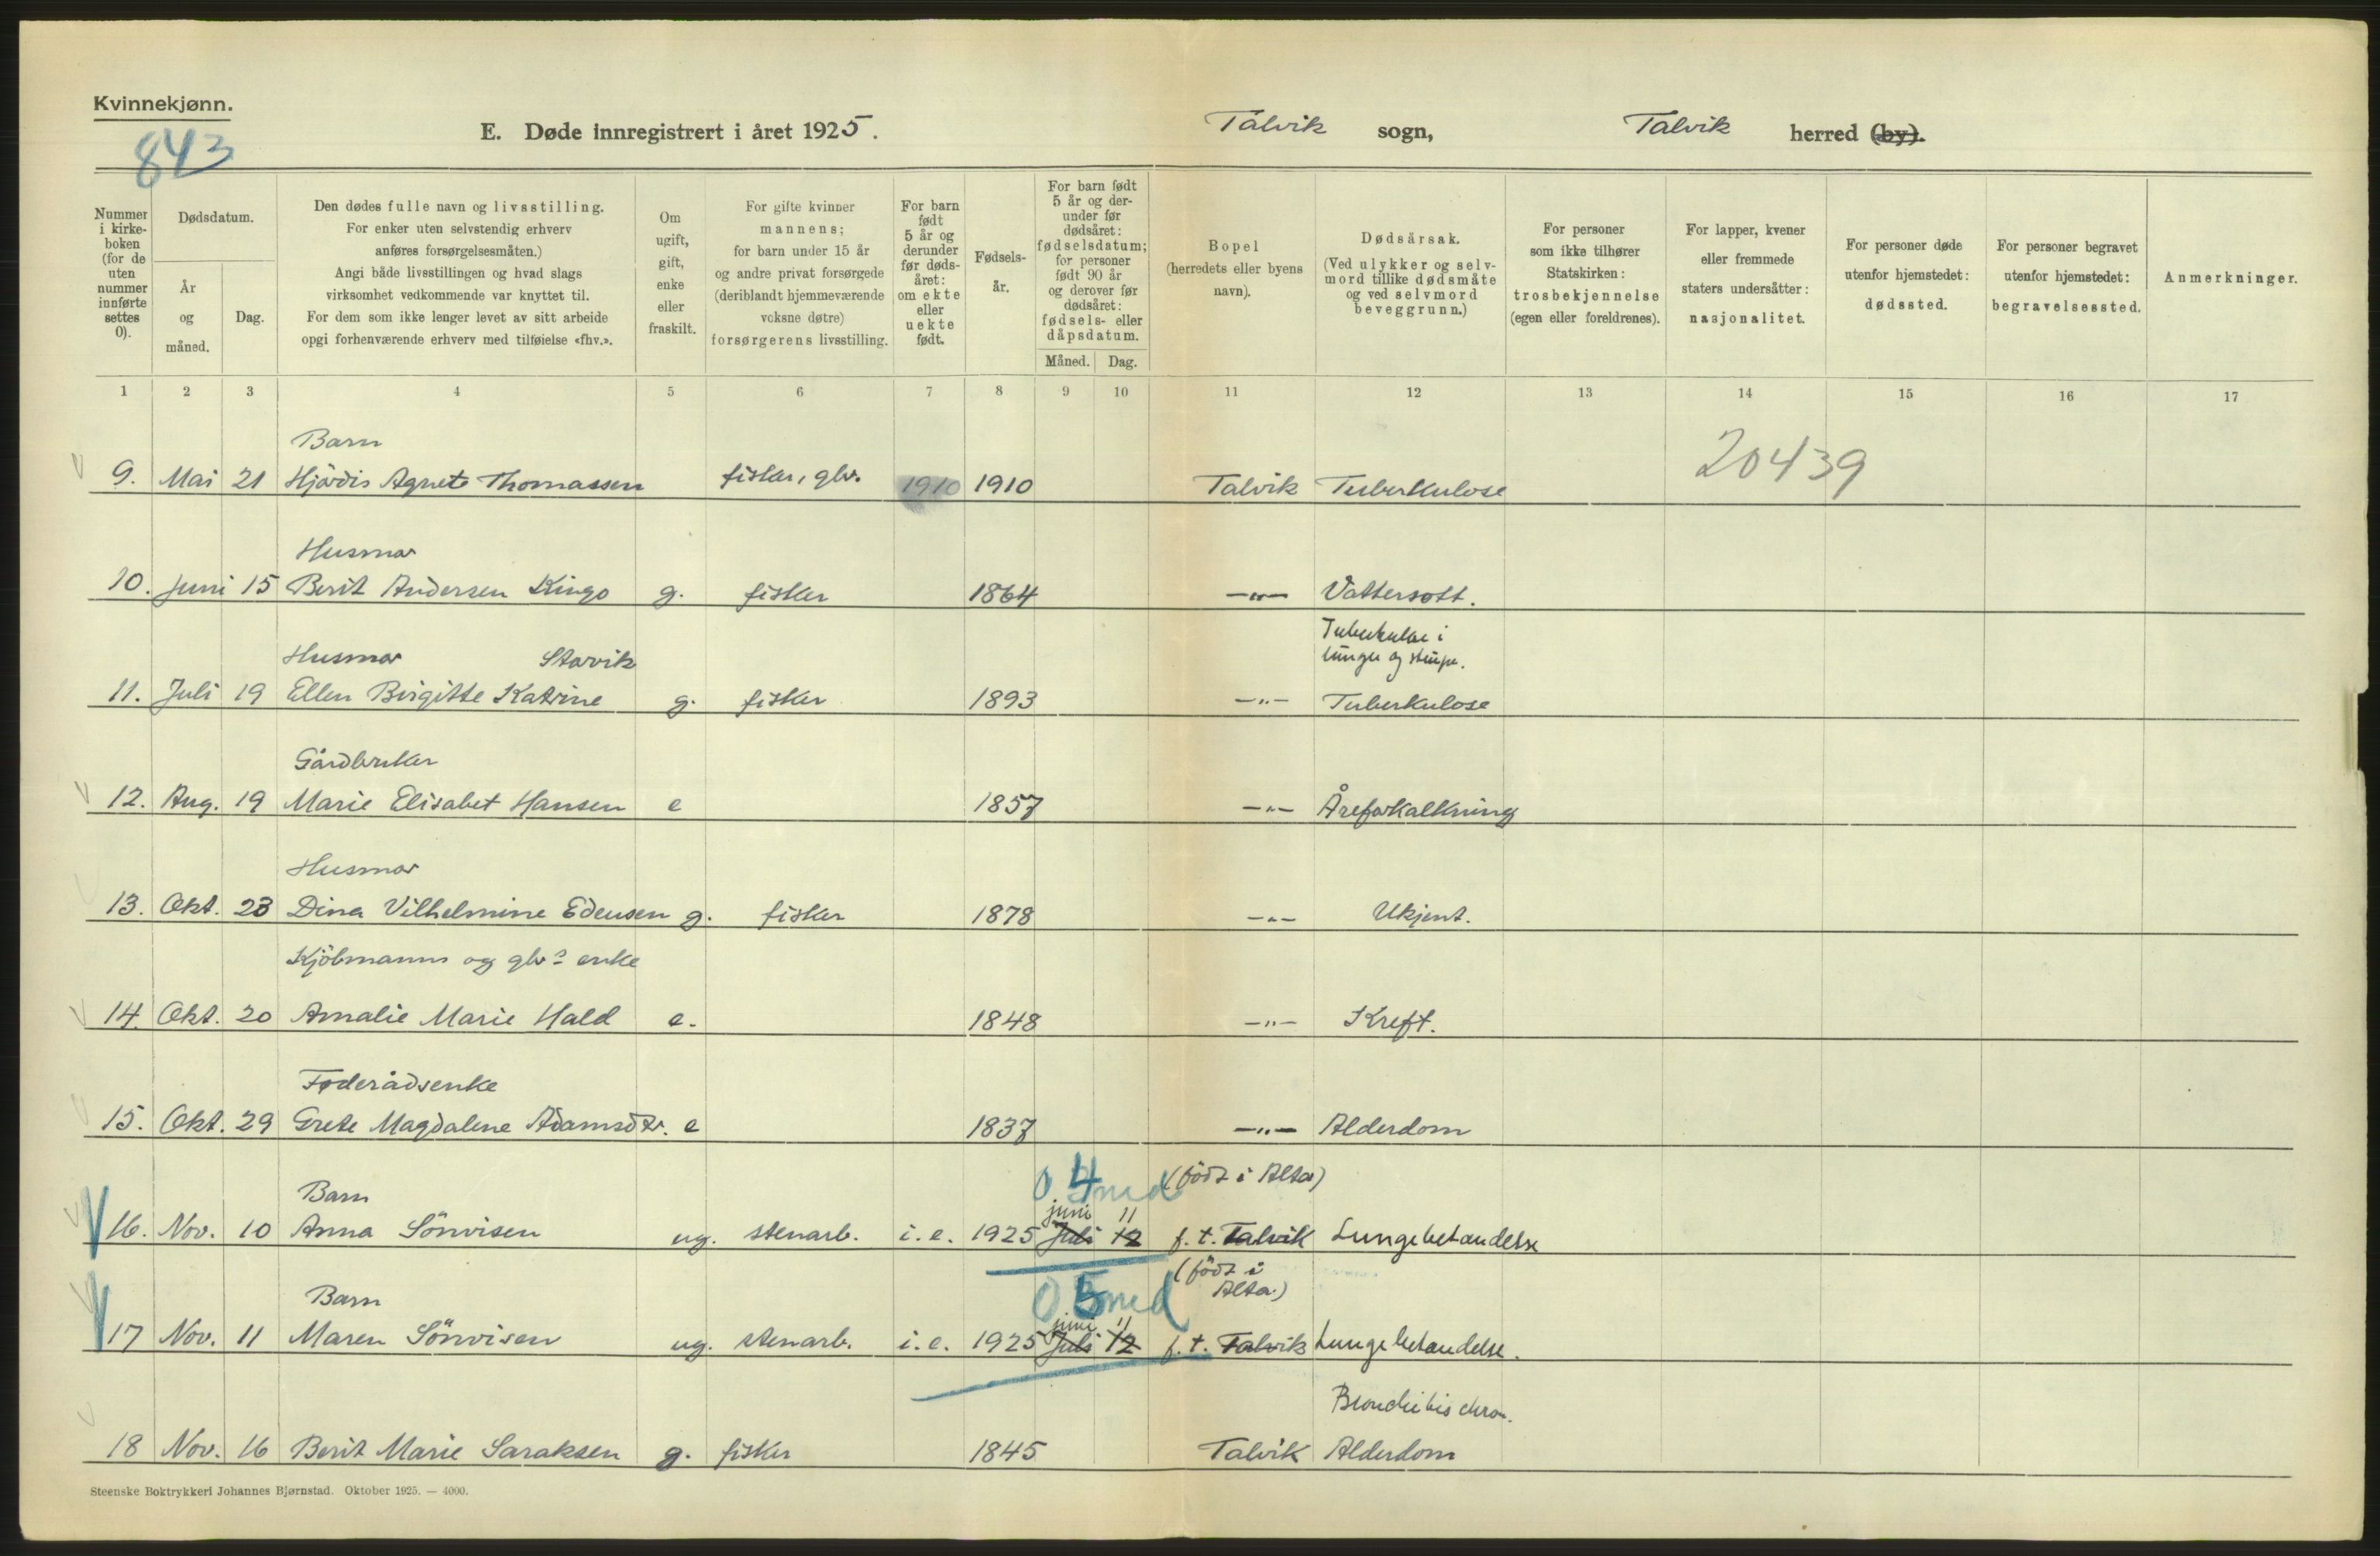 Kvinnekjønn.
843
E. Døde innregistrert i året 1925. Talvik sogn, Talvik herred (by).
Nummer i kirke-boken (for de uten nummer innførte settes 0).
Dødsdatum.
År og måned.
Dag.
Den dødes fulle navn og livsstilling.
For enker uten selvstendig erhverv
anføres forsørgelsesmåten.)
Angi både livsstillingen og hvad slags
virksomhet vedkommende var knyttet til.
For dem som ikke lenger levet av sitt arbeide
opgi forhenværende erhverv med tilføielse «fhv.».
Om ugift, gift, enke eller fraskilt.
For gifte kvinner
mannens;
for barn under 15 år
og andre privat forsørgede
(deriblandt hjemmeværende
voksne døtre)
forsørgerens livsstilling.
For barn født 5 år og derunder før døds-året: om ekte eller uekte født.
Fødsels-år.
For barn født 5 år og der-under før dødsåret: fødselsdatum; for personer født 90 år og derover før dødsåret: fødsels- eller dåpsdatum.
Måned. Dag.
Bopel
(herredets eller byens
navn).
Dødsårsak.
(Ved ulykker og selv-
mord tillike dødsmåte
og ved selvmord
beveggrunn.)
For personer
som ikke tilhører
Statskirken:
trosbekjennelse
(egen eller foreldrenes).
For lapper, kvener
eller fremmede
staters undersåtter:
nasjonalitet.
For personer døde
utenfor hjemstedet:
dødssted.
For personer begravet
utenfor hjemstedet:
begravelsessted.
Anmerkninger.
1 2 3 4 5 6 7 8 9 10 11 12 13 14 15 16 17
Barn
9. Mai 21 Hjördis Agnete Thomassen fisker, gbr. 1910 1910 Talvik Tuberkulose
20439
Husmor
10. Juni 15 Berit Andersen Kingo g. fisker 1864 —"— Vattersott.
Tuberkulose i
lunger og strupe.
Husmor Storvik
11. Juli 19 Ellen Birgitte Katrine g. fisker 1893 —"— Tuberkulose
Gårdbruker
12. Aug. 19 Marie Elisabet Hansen e 1857 —"— Åreforkalkning
Husmor
13. Okt. 23 Dina Vilhelmine Edensen g. fisker 1878 —"— Ukjent.
Kjöbmanns og gbrs enke
14. Okt. 20 Amalie Marie Hald e. 1848 —"— Kreft.
Føderådsenke
15. Okt. 29 Grete Magdalene Adamsdtr. e 1837 —"— Alderdom
0 4 md (födt i Alta)
Barn juni 11
16. Nov. 10 Anna Sönvisen ug. stenarb. i.e. 1925 Juli 12 f.t. Talvik Lungebetændelse
0 5 md (födt i
Alta.)
Barn juni 11
17 Nov. 11 Maren Sönvisen ug. stenarb. i.e. 1925 Juli 12 f.t. Talvik Lungebetændelse.
Bronchitis chron.
18 Nov. 16 Berit Marie Saraksen g. fisker 1845 Talvik Alderdom
Steenske Boktrykkeri Johannes Bjørnstad. Oktober 1925. — 4000.